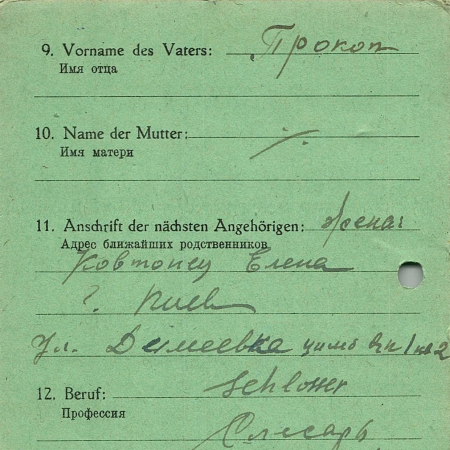 9. Vorname des Vaters: Прокоп
Имя отца
10. Name der Mutter: ·/.
Имя матери
11. Anschrift der nächsten Angehörigen: жена
Адрес ближайших родственников
Ковтонец Елена
г. Киев
Ул. Демеевка
12. Beruf: Schlosser
Профессия
Слесарь